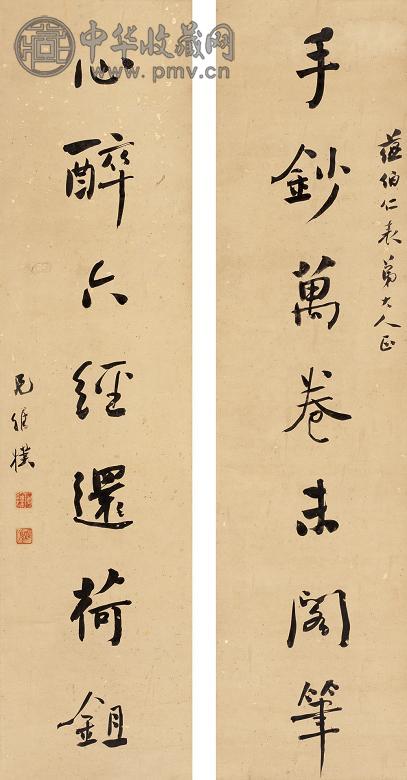 中华收藏网
www.pmv.cn
蕴伯仁表弟大人正
手鈔萬卷未閣筆
心醉六經還荷鉏
兄維樸